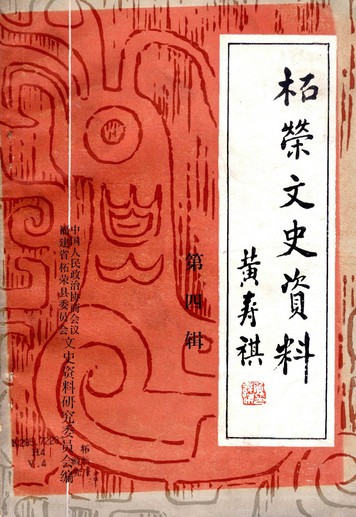 柘榮文史資料
黄寿祺
第四辑
中国人民政治协商会议
福建省柘荣县委员会
文史资料研究委员会编